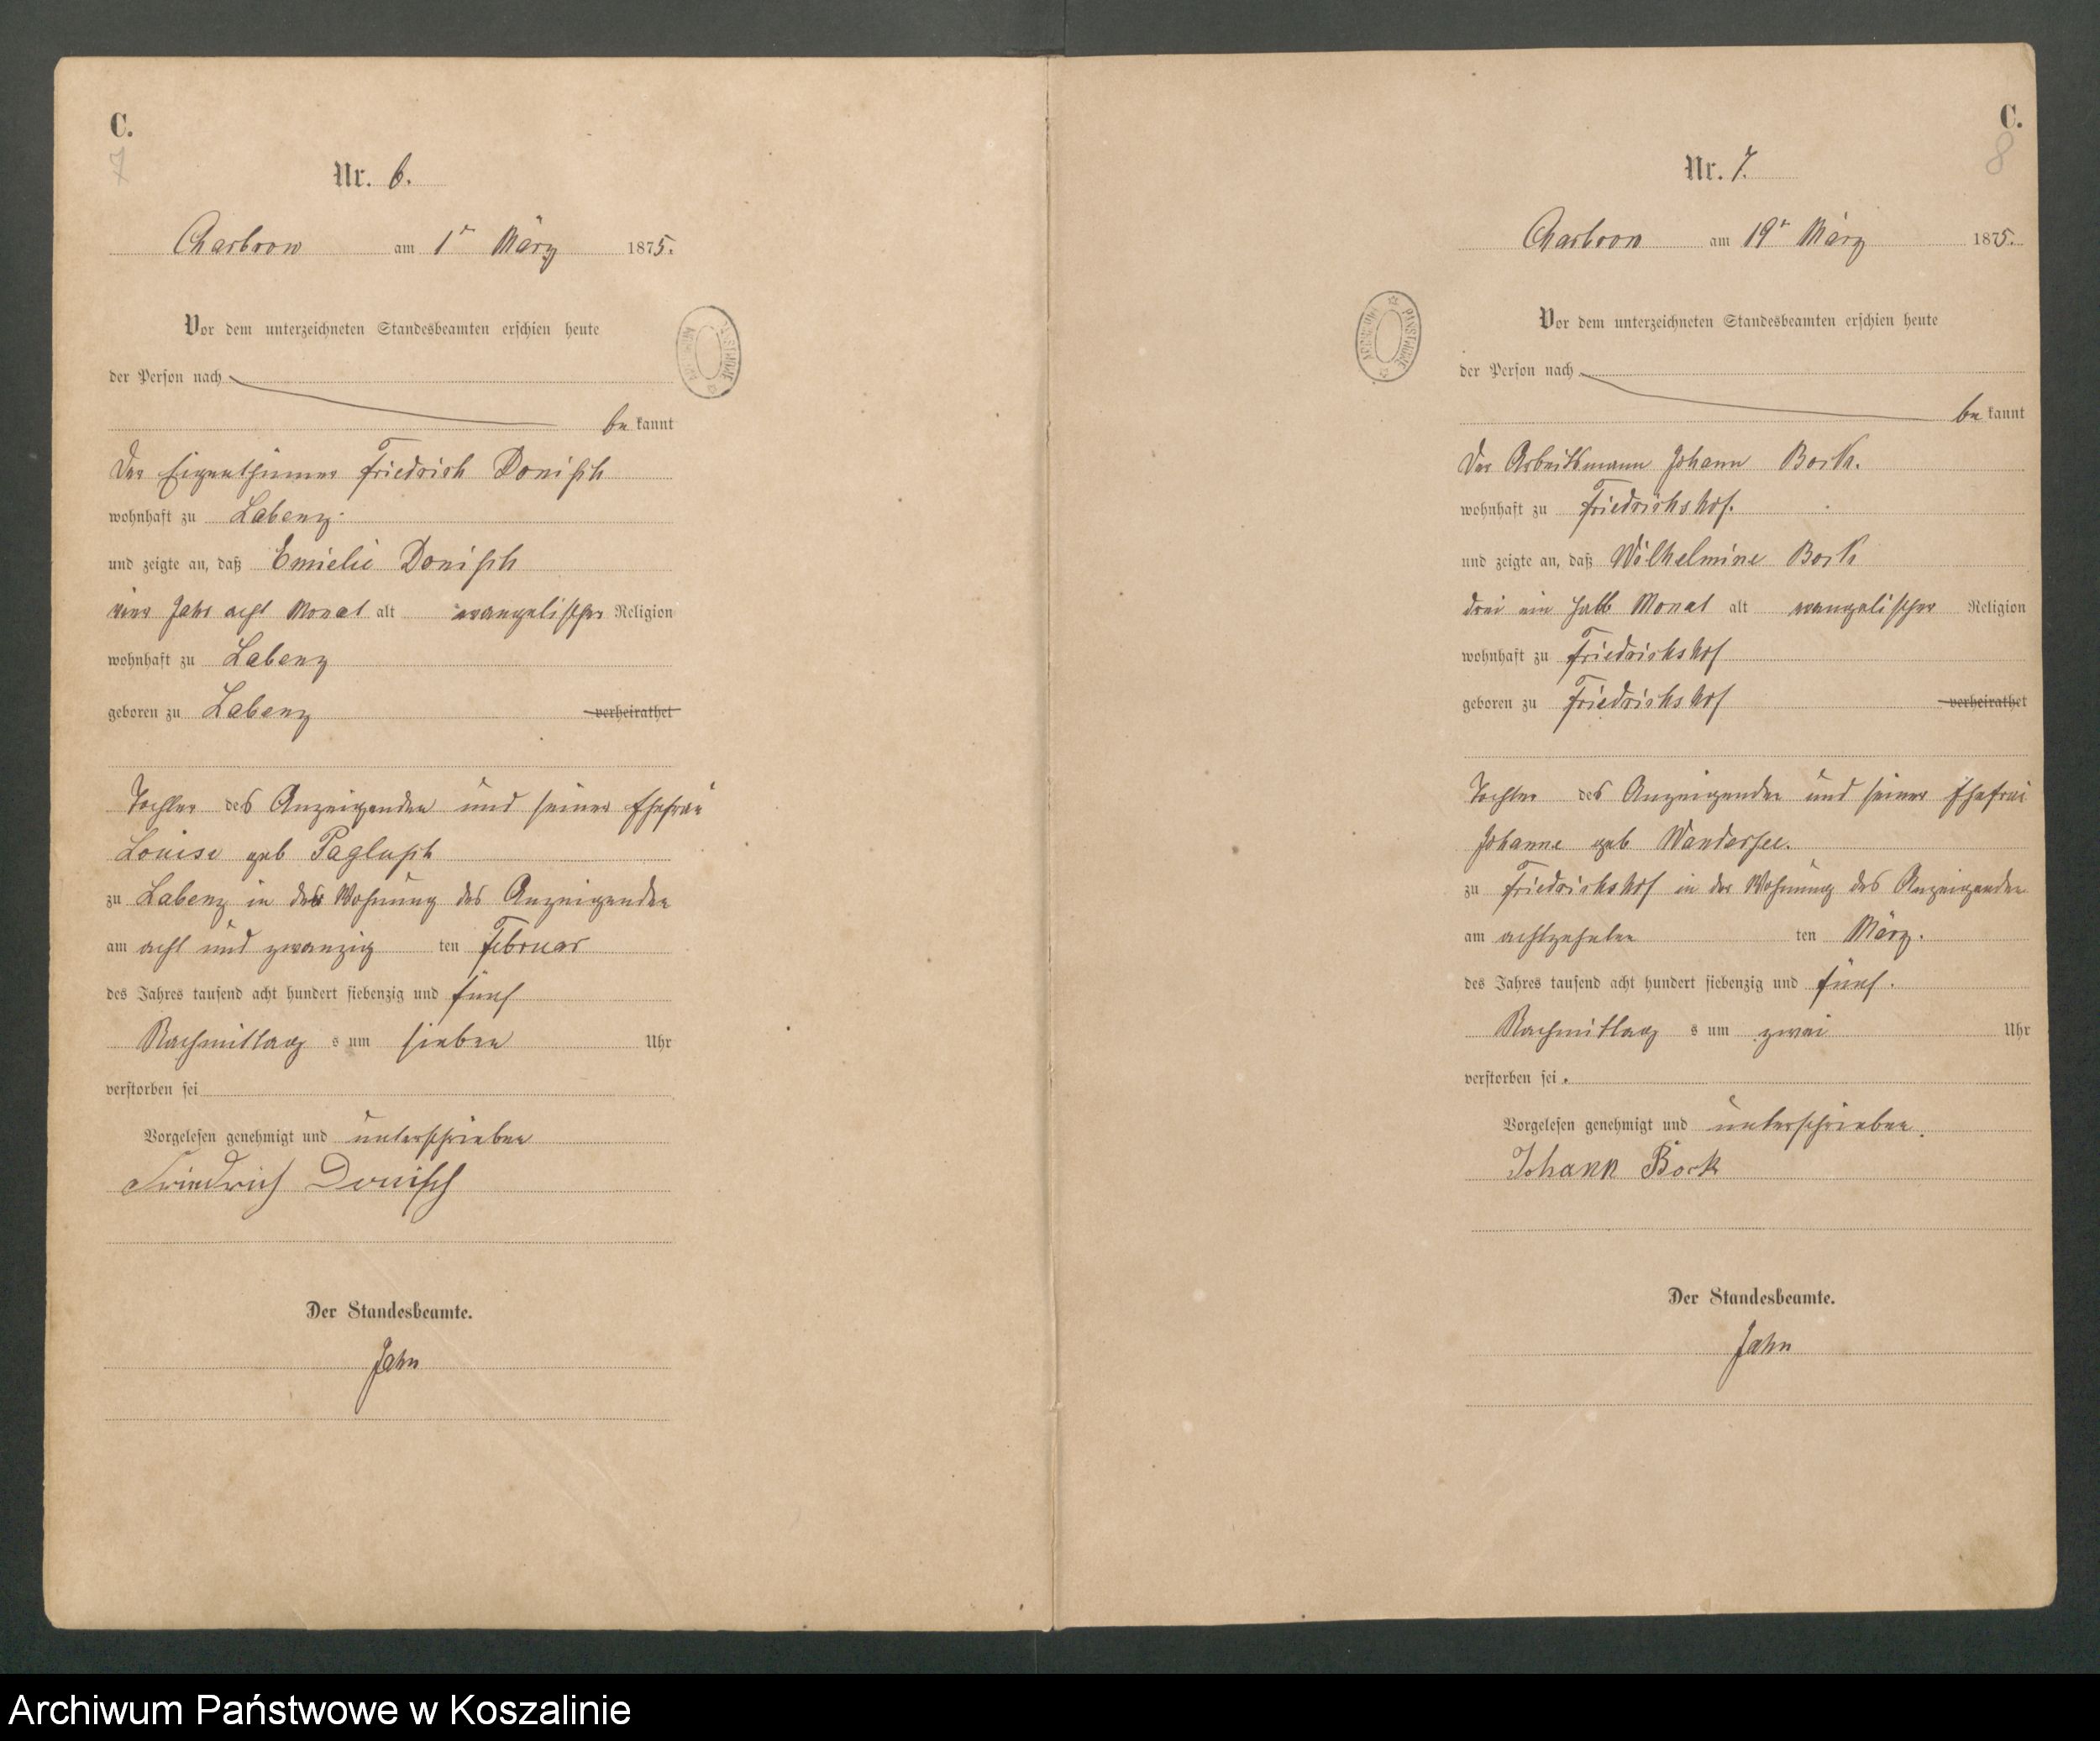 C.
7
Nr. 6.
Charbrow am 1ᵗ März 1875.
Vor dem unterzeichneten Standesbeamten erschien heute
der Person nach
bekannt
Der Eigenthümer Friedrich Donisch
wohnhaft zu Labenz.
und zeigte an, daß Emielie Donisch
vier Jahr acht Monat alt evangelischer Religion
wohnhaft zu Labenz
geboren zu Labenz verheirathet
Tochter des Anzeigenden und seiner Ehefrau
Louise geb Paglasch
zu Labenz in der Wohnung des Anzeigenden
am acht und zwanzig ten Februar
des Jahres tausend acht hundert siebenzig und fünf
Nachmittag s um sieben Uhr
verstorben sei
Vorgelesen genehmigt und unterschrieben
Friedrich Donisch
Der Standesbeamte.
Jahn
C.
8
Nr. 7.
Charbrow am 19ᵗ März 1875.
Vor dem unterzeichneten Standesbeamten erschien heute
der Person nach
bekannt
Der Arbeitsmann Johann Bork.
wohnhaft zu Friedrichshof.
und zeigte an, daß Wilhelmine Bork
drei ein halb Monat alt evangelischer Religion
wohnhaft zu Friedrichshof
geboren zu Friedrichshof verheirathet
Tochter des Anzeigenden und seiner Ehefrau
Johanne geb Wandersee.
zu Friedrichshof in der Wohnung des Anzeigenden
am achtzehnten ten März.
des Jahres tausend acht hundert siebenzig und fünf.
Nachmittag s um zwei Uhr
verstorben sei.
Vorgelesen genehmigt und unterschrieben.
Johann Bork
Der Standesbeamte.
Jahn
ARCHIWUM PAŃSTWOWE
ARCHIWUM PAŃSTWOWE
Archiwum Państwowe w Koszalinie